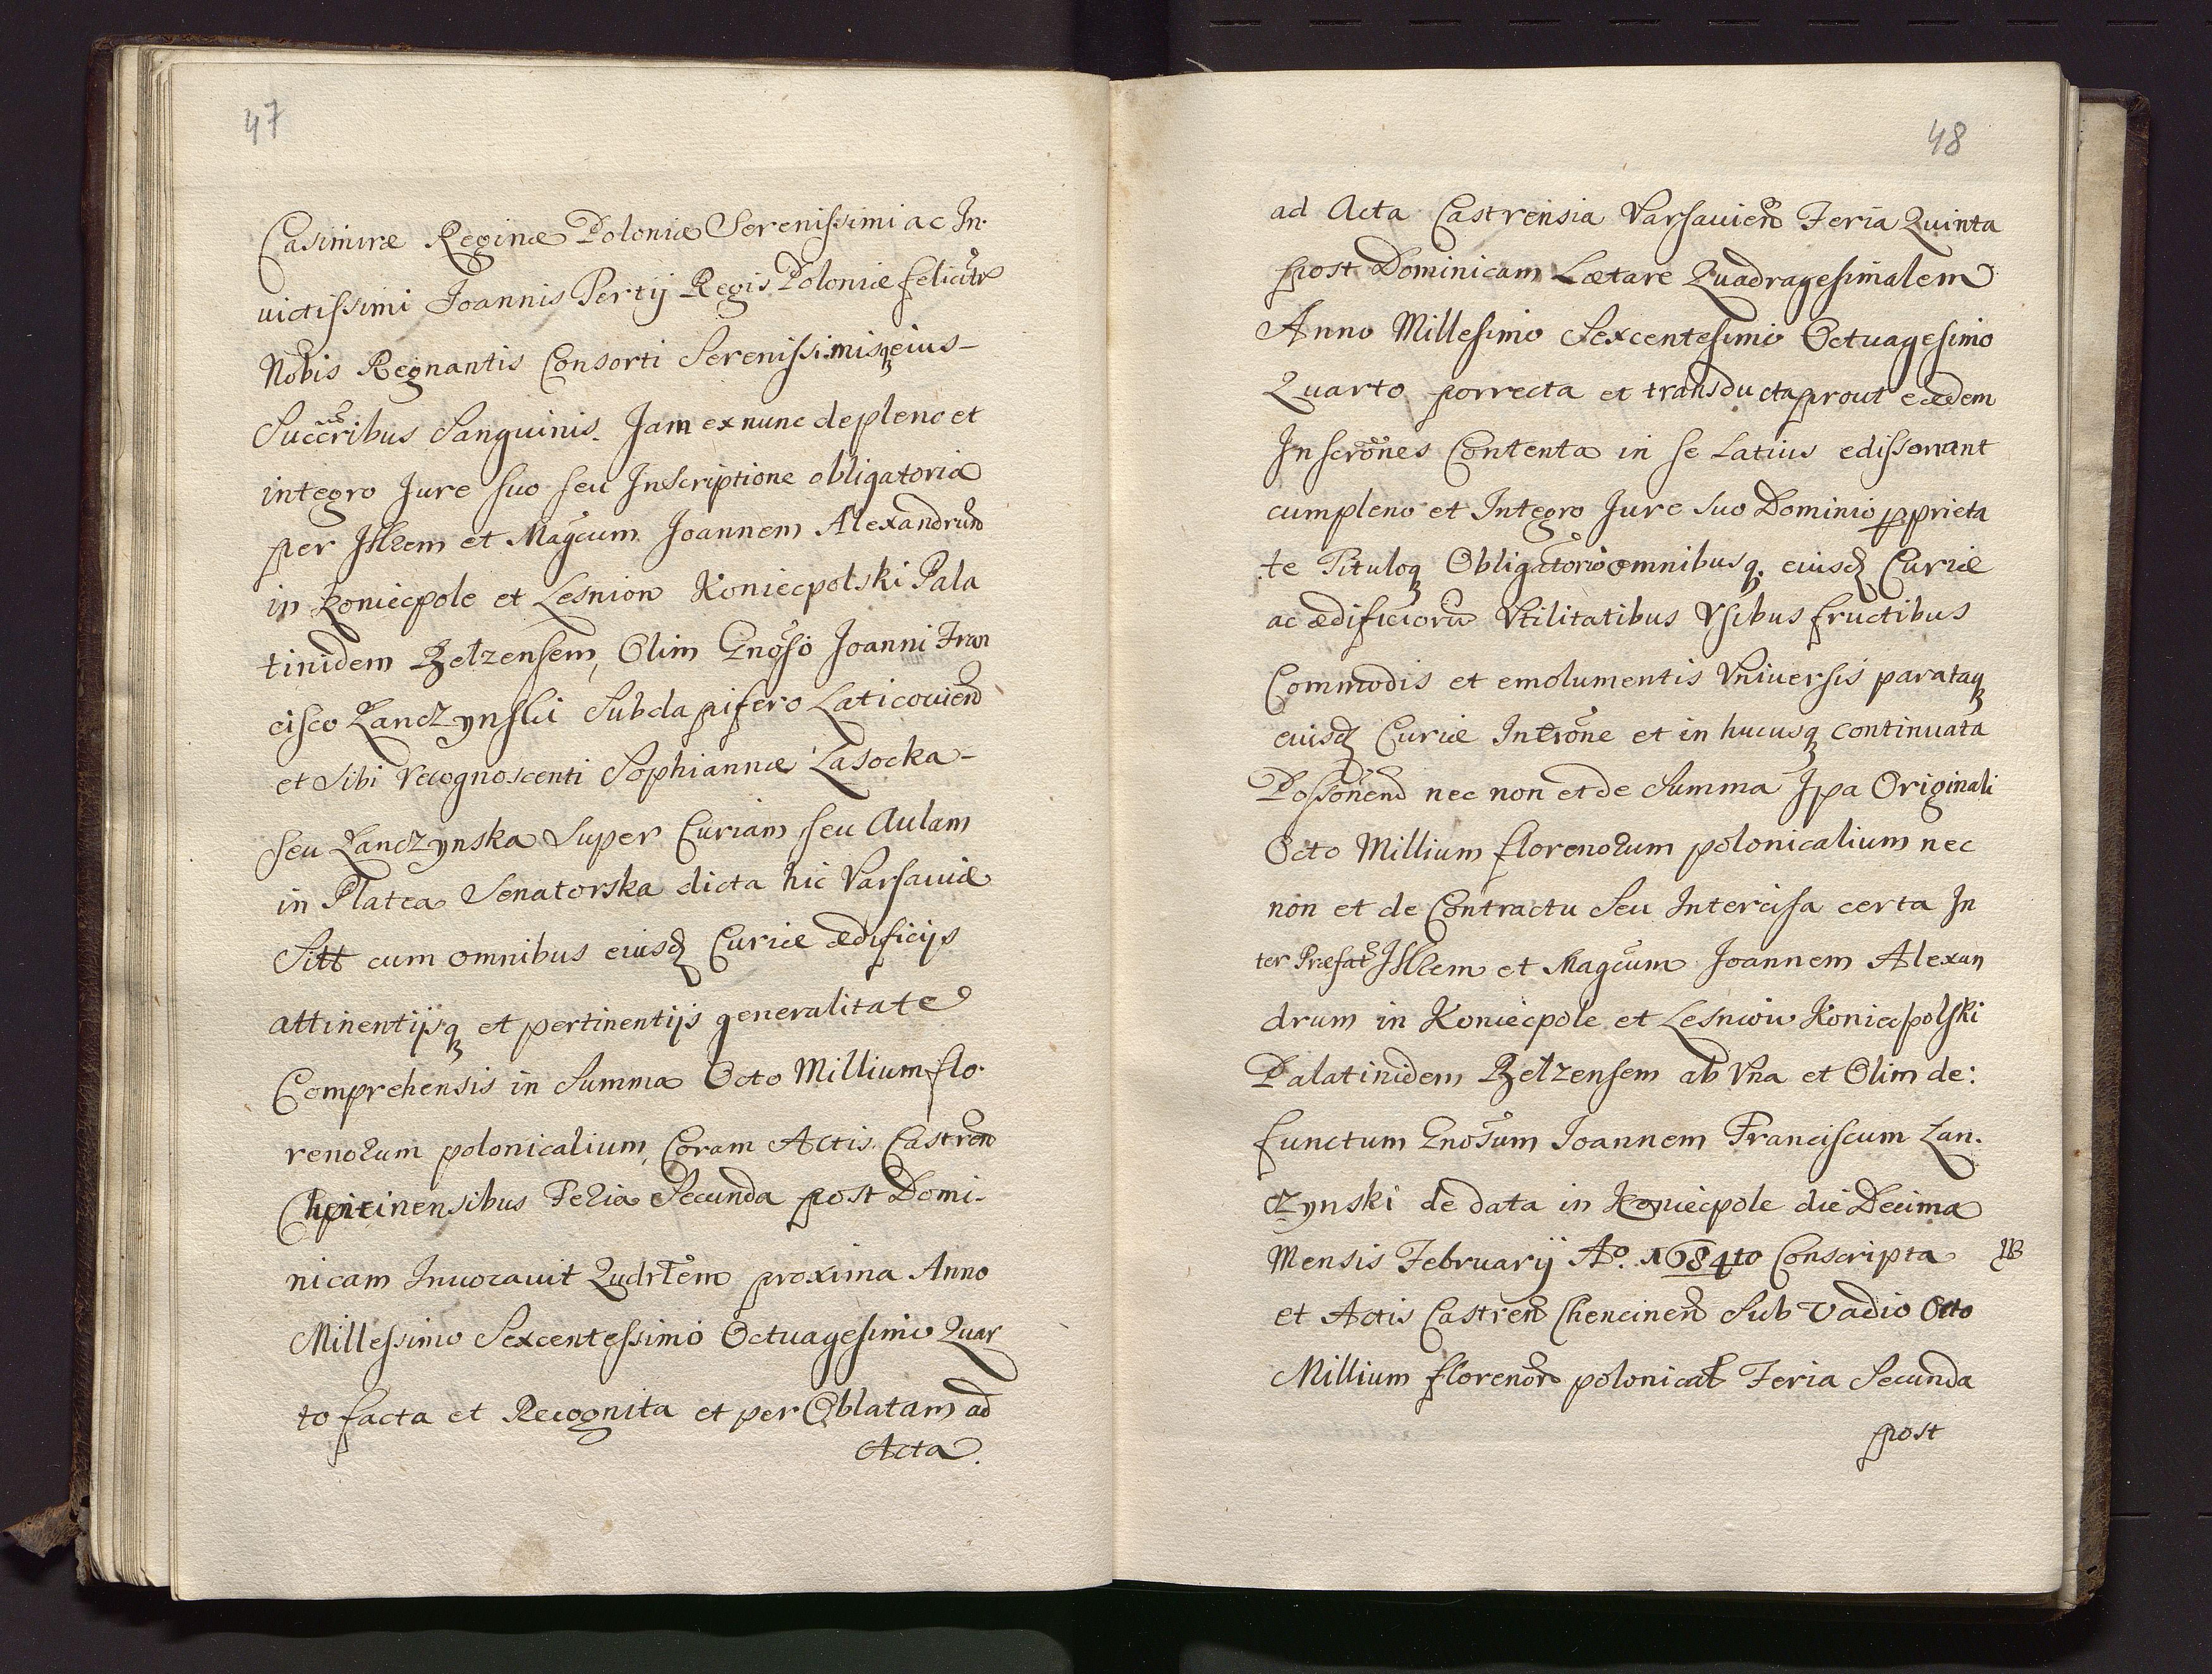 47
Casimiræ Reginæ Poloniæ Serenissimi ac In-
victissimi Joannis Tertij Regis Poloniæ felicitr
Nobis Regnantis Consorti Serenissimisq eius-
Succribus Sanguinis. Jam ex nunc de pleno et
integro Jure suo seu Inscriptione obligatoria
per Illrem et Magcum Joannem Alexandrum
in Koniecpole et Lesniow Koniecpolski Pala
tinidem Belzensem, Olim Gnoso Joanni Fran
cisco Lanczynski Subdapifero Laticovien
et Sibi recognoscenti Sophiannæ Lasocka-
seu Lanczynska Super Curiam seu Aulam
in Platea Senatorska dicta hic Varsaviæ
Sitt cum omnibus eiusd Curiæ ædificijs
attinentijsq et pertinentijs generalitate
Comprehensis in Summa Octo Millium flo-
renorum polonicalium, Coram Actis Castren
Chencinensibus Feria Secunda post Domi-
nicam Invocavit Qudrlem proxima Anno
Millessimo Sexcentessimo Octuagesimo Quar
to facta et Recognita et per Oblatam ad
Acta.
48
ad Acta Castrensia Varsavien Feria Quinta
post Dominicam Lætare Quadragesimalem
Anno Millesimo Sexcentesimo Octuagesimo
Quarto porrecta et transducta prout eædem
Inscrones Contenta in se Latius edissonant
cum pleno et Integro Jure suo Dominio pprieta
te Tituloq Obligatorio omnibusq. eiusd Curiæ
ac ædificioru Vtilitatibus Vsibus fructibus
Commodis et emolumentis Vniversis parataq
eiusd Curiæ Introne et in hucusq continuata
Possonend nec non et de Summa Ipa Originali
Octo Millium florenorum polonicalium nec
non et de Contractu Seu Intercisa certa In
ter Præfat Illrem et Magcum Joannem Alexan
drum in Koniecpole et Lesniow Koniecpolski
Palatinidem Belzensem ab Vna et Olim de:
functum Gnosum Joannem Franciscum Lan-
czynski de data in Koniecpole die Decima
Mensis February Aº. 1684to Conscripta NB
et Actis Castren Chencinen Sub vadio Octo
Millium florenor polonical Feria Secunda
post